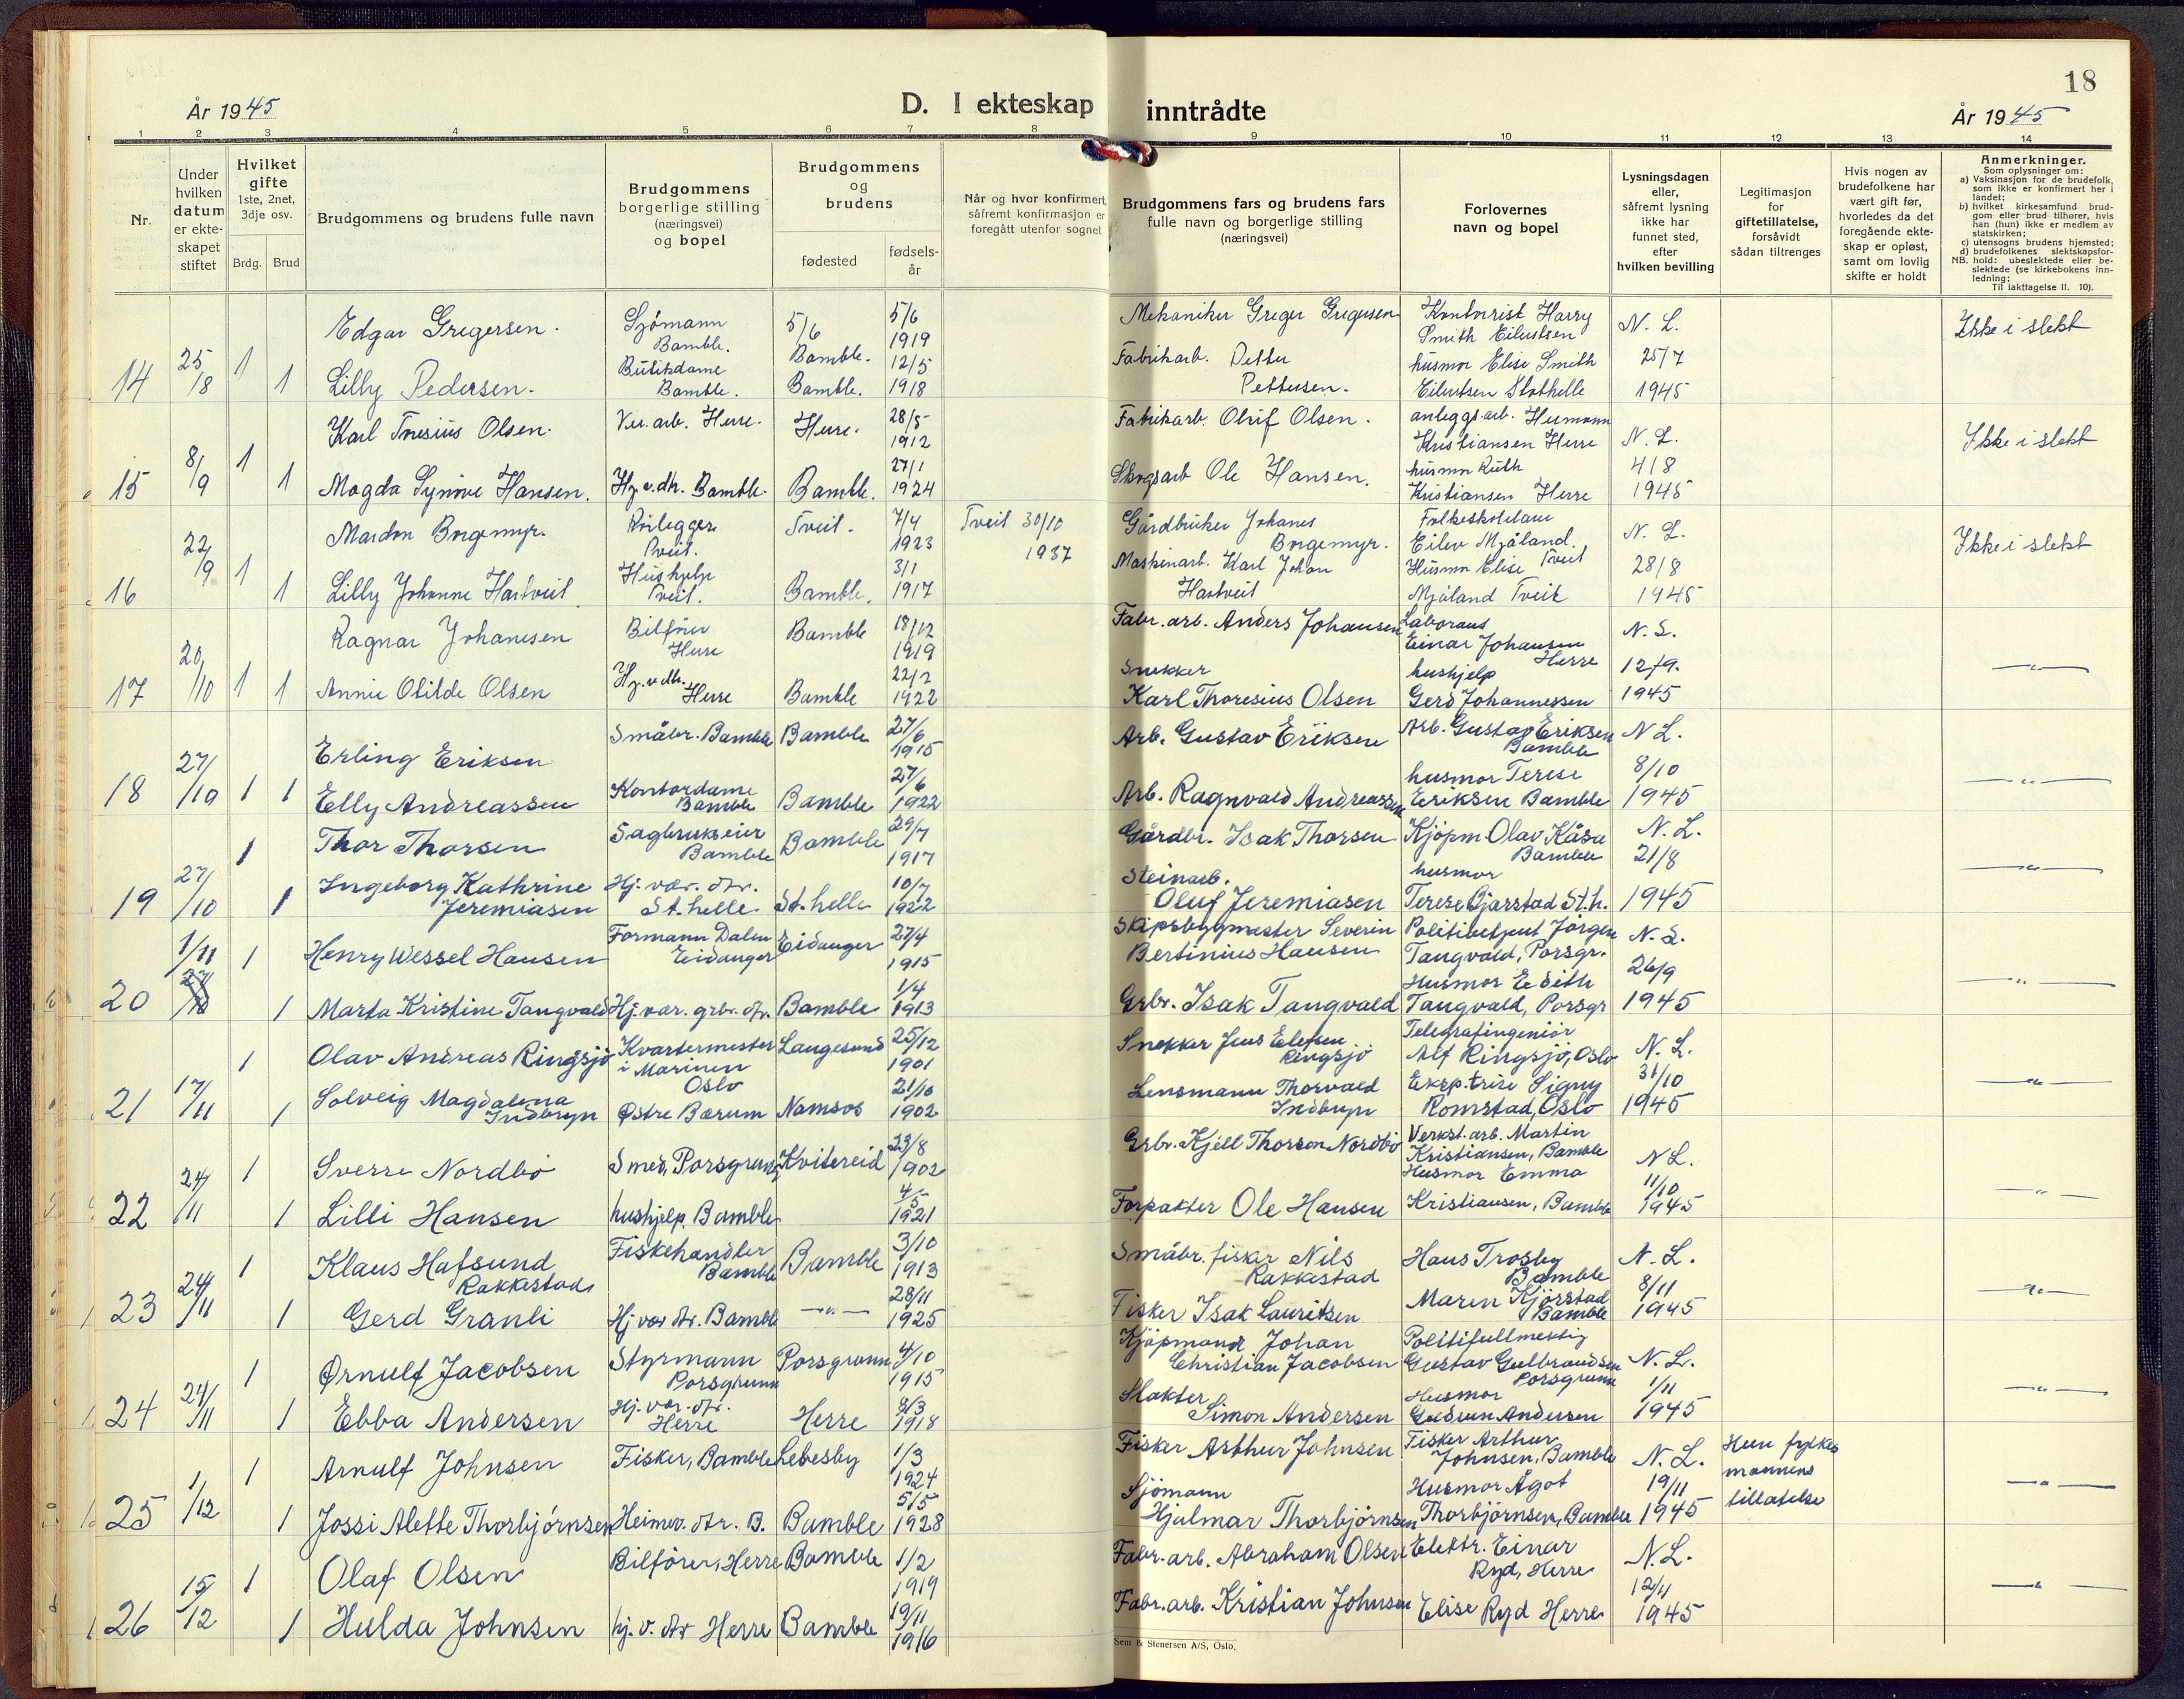 18
År 1945
D. I ekteskap inntrådte
År 1945
1 2 3 4 5 6 7 8 9 10 11 12 13 14
Nr.
Under hvilken datum er ekteskapet stiftet
Hvilket gifte
1ste, 2net, 3dje osv.
Brdg. Brud
Brudgommens og brudens fulle navn
Brudgommens borgerlige stilling (næringsvei) og bopel
Brudgommens og brudens
fødested
fødsels-år
Når og hvor konfirmert, såfremt konfirmasjon er foregått utenfor sognet
Brudgommens fars og brudens fars fulle navn og borgerlige stilling (næringsvei)
Forlovernes navn og bopel
Lysningsdagen eller, såfremt lysning ikke har funnet sted, efter hvilken bevilling
Legitimasjon for giftetillatelse, forsåvidt sådan tiltrenges
Hvis nogen av brudefolkene har vært gift før, hvorledes da det foregående ekteskap er opløst, samt om lovlig skifte er holdt
Anmerkninger.
Som oplysninger om:
a) Vaksinasjon for de brudefolk, som ikke er konfirmert her i landet;
b) hvilket kirkesamfund brudgom eller brud tilhører, hvis han (hun) ikke er medlem av statskirken;
c) utensogns brudens hjemsted;
d) brudefolkenes slektskapsforhold: ubeslektede eller beslektede (se kirkebokens innledning;
NB. Til iakttagelse II. 10).
14 25/8 1 Edgar Gregersen. Sjömann Bamble. 5/6 Bamble. 5/6 1919 Mekaniker Greger Gregersen Kontorist Harry Smith Eilertsen N. L. Ikke i slekt
1 Lilly Pedersen. Butikdame Bamble. Bamble. 12/5 1918 Fabrikarb. Petter Pettersen. husmor Elise Smith Eilertsen Stathelle 25/7 1945
15 8/9 1 Karl Tresius Olsen. Ver. arb. Herre. Herre. 28/5 1912 Fabrikarb. Oluf Olsen. anleggsarb. Hermann Kristiansen Herre N. L. Ikke i slekt
1 Magda Synöve Hansen. Hj. v. dtr. Bamble. Bamble. 27/1 1924 Skogsarb Ole Hansen. husmor Ruth Kristiansen Herre 4/8 1945
16 22/9 1 Mardon Borgemyr. Rörlegger Tveit. Tveit. 7/4 1923 Tveit 30/10 1937 Gårdbruker Johanes Borgemyr. Folkeskolelærer Eilev Mjåland. Tveit N. L. Ikke i slekt
1 Lilly Johanne Hartveit. Hushjelp Tveit. Bamble. 3/1 1917 Maskinarb. Karl Johan Hartveit Husmor Elise Mjåland Tveit 28/8 1945
17 20/10 1 1 Ragnar Johansen Bilförer Herre Bamble 18/12 1919 Fabr. arb. Anders Johansen Laborant Einar Johansen Herre N. L. —"—
Annie Otilde Olsen Hj. v. dtr. Herre Bamble 22/2 1922 Snekker Karl Thoresius Olsen hushjelp Gerd Johannessen 12/9. 1945
18 27/10 1 1 Erling Eriksen Småbr. Bamble Bamble 27/6 1915 Arb. Gustav Eriksen Arb. Gustav Eriksen Bamble N L. —"—
Elly Andreassen Kontordame Bamble Bamble 27/6 1922 Arb. Ragnvald Andreassen husmor Terese Eriksen Bamble 8/10 1945
19 27/10 1 Thor Thorsen Sagbrukseier Bamble Bamble 29/7 1917 Gårdbr. Isak Thorsen Kjöpm. Olav Kåsa Bamble N. L. —"—
1 Ingeborg Kathrine Jeremiasen Hj. vær. dtr. St. helle. St. helle 10/7 1922 Steinarb. Oluf Jeremiasen husmor Terese Bjarstad St. h. 21/8 1945
20 1/11 1 Henry Wessel Hansen Formann Dalen Eidanger Eidanger 27/4 1915 Skipsbygmester Severin Bertinius Hansen Politibetjent Jörgen Tangvald, Porsgr. N. L. —"—
1 Marta Kristine Tangvald Hj. vær. grbr. dtr. Bamble 1/4 1913 Grbr. Isak Tangvald Husmor Edith Tangvald, Porsgr 26/9 1945
21 17/11 1 Olav Andreas Ringsjö Kvartermester i Marinen Oslo Langesund 25/12 1901 Snekker Jens Elefsen Ringsjö Telegrafingeniör Alf Ringsjö, Oslo N. L. —"—
1 Solveig Magdalena Indbryn Østre Bærum Namsos 21/10 1902 Lensmann Thorvald Indbryn Eksp.trise Signy Romstad, Oslo 31/10 1945
22 24/11 1 Sverre Nordbö Smed, Porsgrunn Kviteseid 23/8 1902 Grbr. Kjell Thorson Nordbö Verkst. arb. Martin Kristiansen, Bamble N L. —"—
1 Lilli Hansen hushjelp, Bamble 4/5 1921 Forpakter Ole Hansen Husmor Emma Kristiansen, Bamble 11/10 1945
23 24/11 1 Klaus Hafsund Rakkestad Fiskehandler Bamble Bamble 3/10 1913 Småbr. fisker Nils Rakkestad Hans Trosby Bamble N. L. —"—
1 Gerd Granli Hj. vær dtr. Bamble —"— 28/11 1925 Fisker Isak Lauritsen Maren Kjörstad Bamble 8/11 1945
24 24/11 1 Ørnulf Jacobsen Styrmann Porsgrunn Porsgrunn 4/10 1915 Kjöpmann Johan Christian Jacobsen Politifullmektig Gustav Gulbrandsen Porsgrunn N. L. —"—
1 Ebba Andersen Hj. vær. dtr. Herre Herre 8/3 1918 Slakter Simon Andersen Husmor Gudrun Andersen 1/11 1945
25 1/12 1 Arnulf Johnsen Fisker, Bamble Lebesby 1/3 1924 Fisker Arthur Johnsen Fisker Arthur Johnsen, Bamble N. L. Hun fylkesmannens tillatelse —"—
1 Jossi Alette Thorbjörnsen Heimev. dtr. B. Bamble 5/5 1928 Sjömann Hjalmar Thorbjörnsen Husmor Ågot Thorbjörnsen, Bamble 19/11 1945
26 15/12 1 Olaf Olsen Bilförer, Herre Bamble 1/2 1919 Fabr. arb. Abraham Olsen Elektr. Einar Ryd, Herre N. L. —"—
1 Hulda Johnsen hj. v. dtr Herre Bamble 19/11 1916 Fabr. arb. Kristian Johnsen Elise Ryd Herre 12/11 1945
Sem & Stenersen A/S, Oslo.